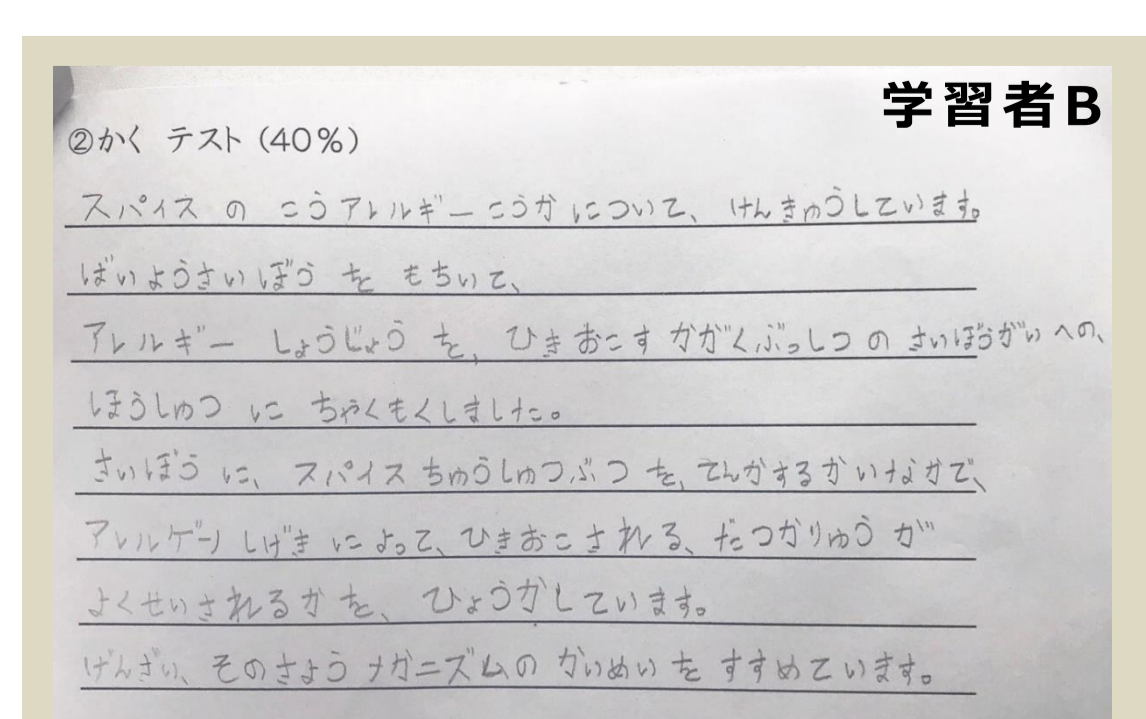 学習者B
②かく テスト（40％）
スパイス の こうアレルギーこうかについて、けんきゅうしています。
ばいようさいぼう を もちいて、
アレルギー しょうじょう を、ひきおこす かがくぶっしつ の さいぼうがい への、
ほうしゅつ に ちゃくもくしました。
さいぼう に、スパイスちゅうしゅつぶつ を、てんかするかいなかで、
アレルゲン しげき によって、ひきおこされる、だつかりゅう が
よくせいされるか を、ひょうかしています。
げんざい、そのさよう メカニズムの かいめい を すすめています。